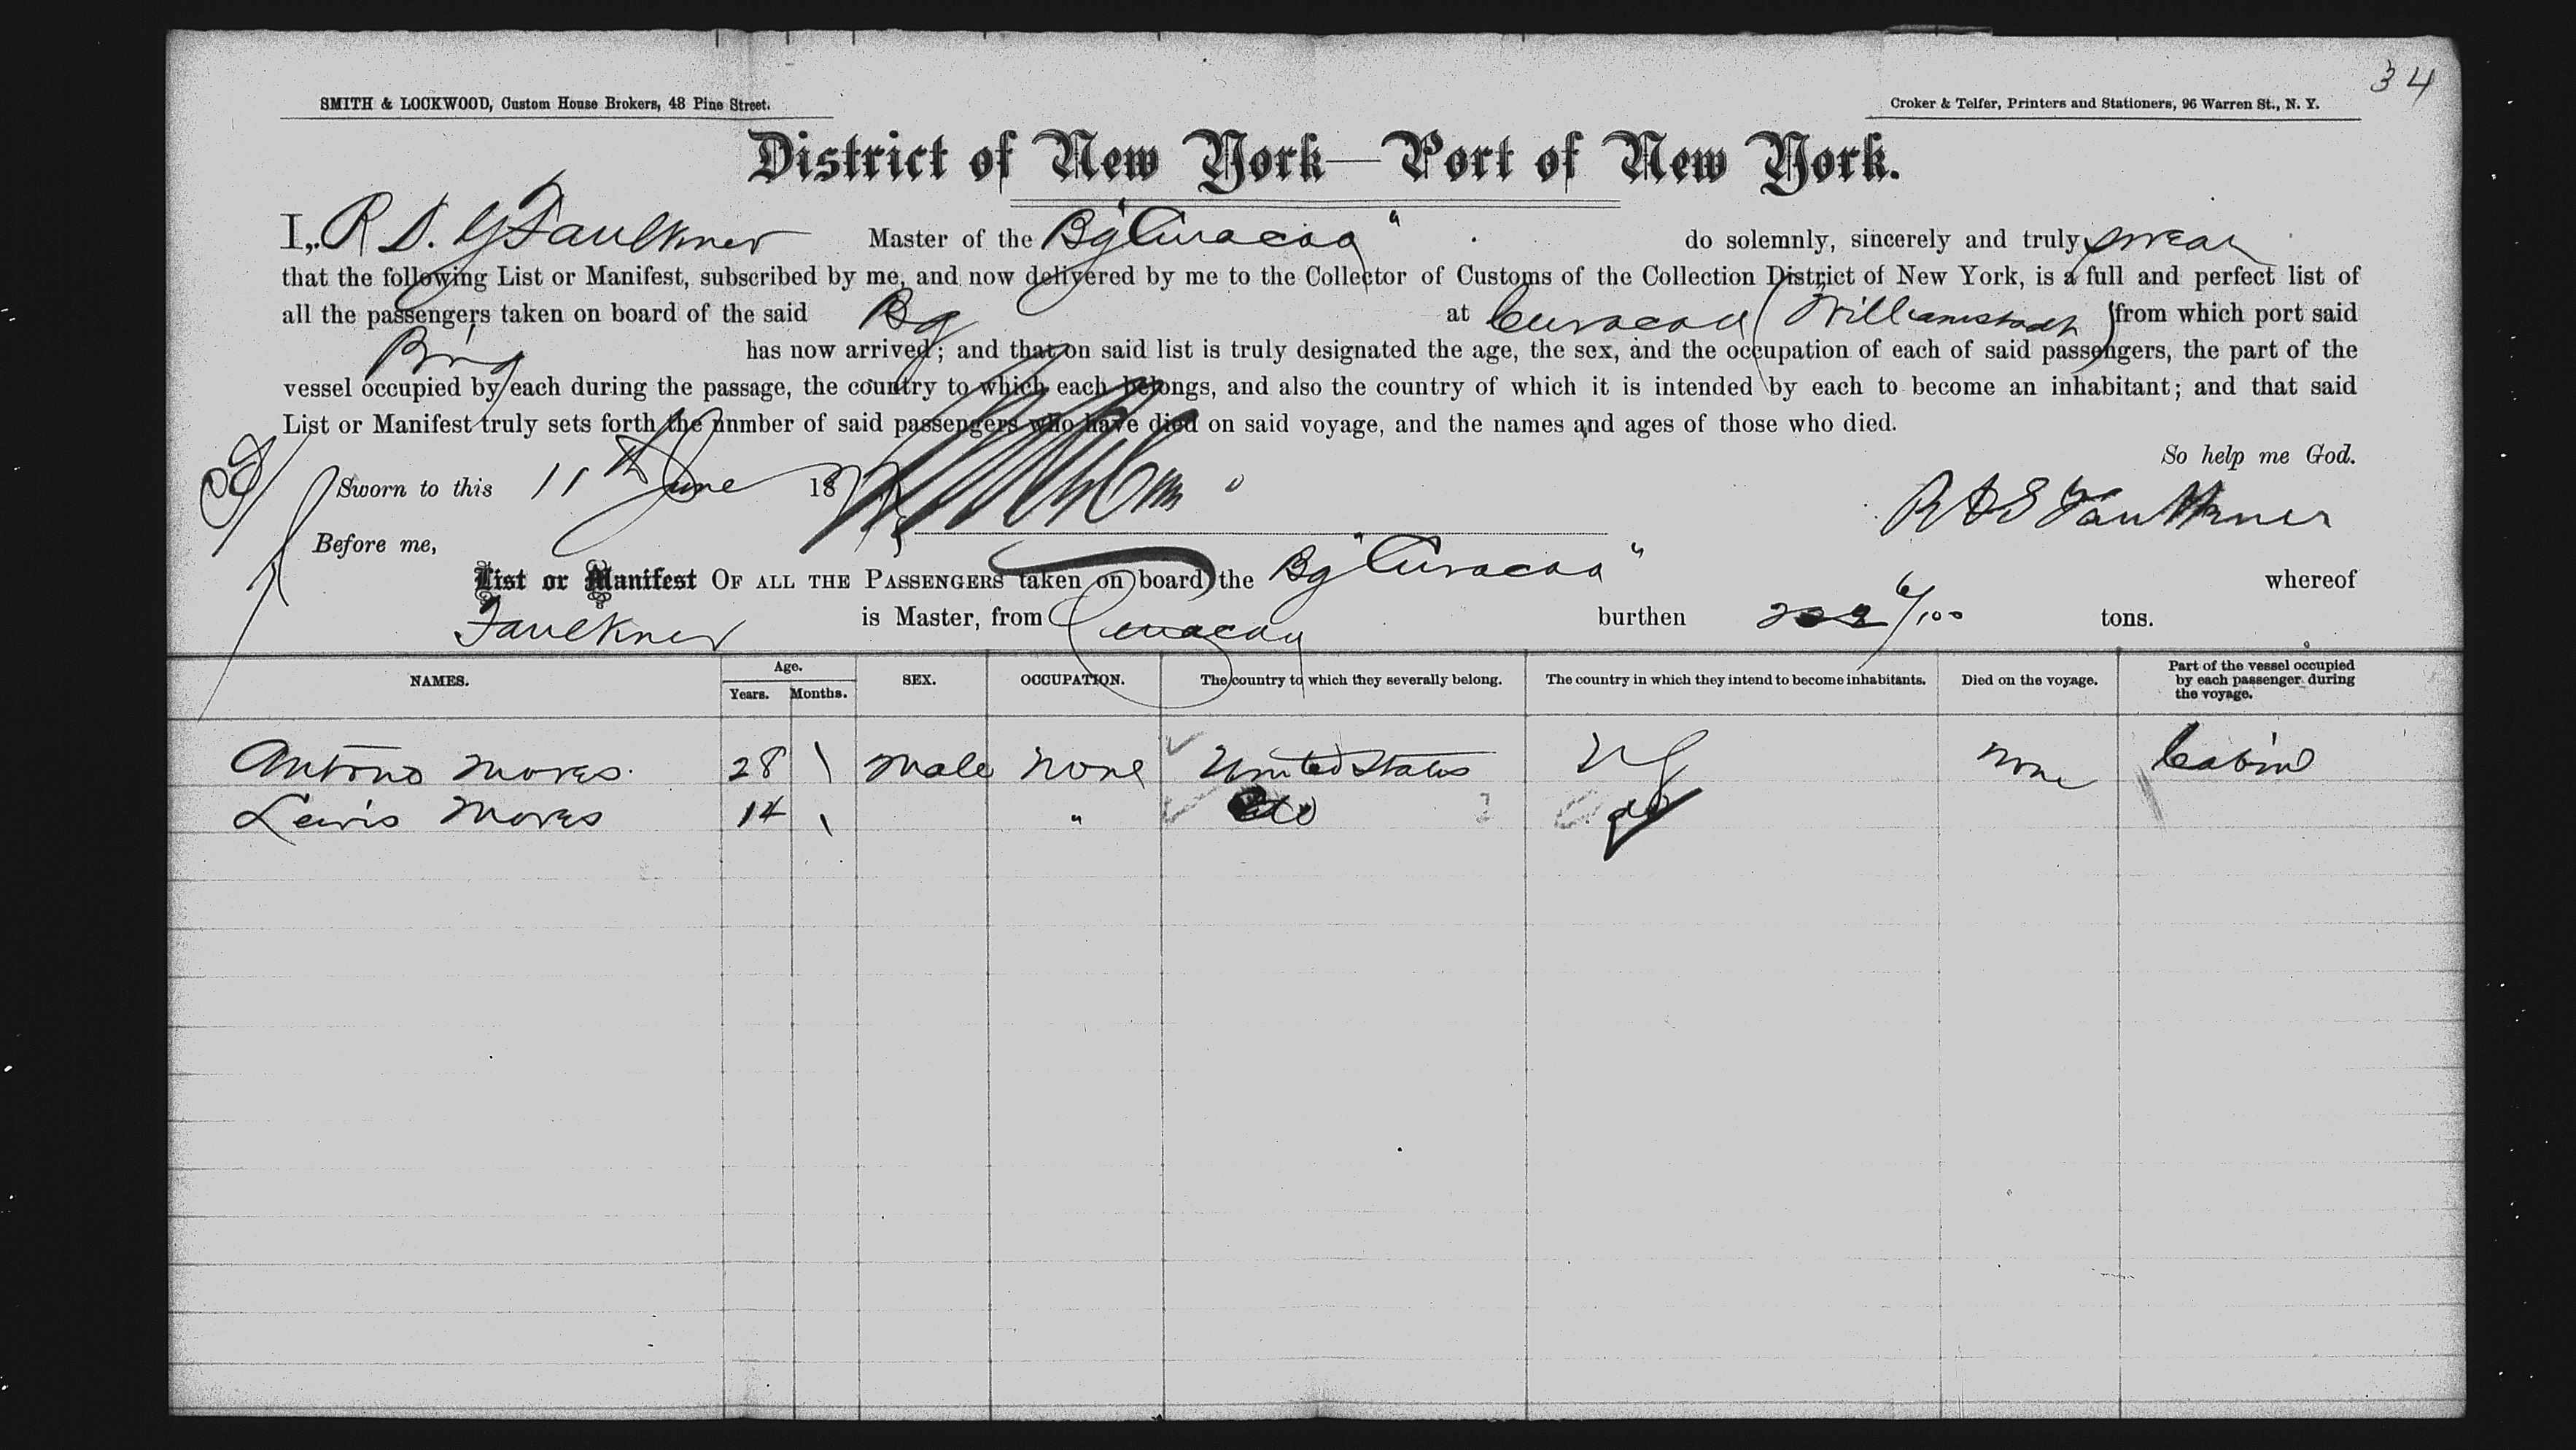 34
SMITH & LOCKWOOD, Custom House Brokers, 48 Pine Street.
Croker & Telfer, Printers and Stationers, 96 Warren St., N. Y.
District of New York—Port of New York.
I, R D. G Faulkner Master of the Bg "Curacoa" do solemnly, sincerely and truly swear
that the following List or Manifest, subscribed by me, and now delivered by me to the Collector of Customs of the Collection District of New York, is a full and perfect list of
all the passengers taken on board of the said Bg at Curacoa (Williamstadt) from which port said
Brig has now arrived; and that on said list is truly designated the age, the sex, and the occupation of each of said passengers, the part of the
vessel occupied by each during the passage, the country to which each belongs, and also the country of which it is intended by each to become an inhabitant; and that said
List or Manifest truly sets forth the number of said passengers who have died on said voyage, and the names and ages of those who died.
So help me God.
Sworn to this 11th June 18
R D G Faulkner
Before me,
List or Manifest OF ALL THE PASSENGERS taken on board the Bg "Curacoa" whereof
Faulkner is Master, from Curacoa burthen 6/100 tons.
NAMES. Age. Years. Months. SEX. OCCUPATION. The country to which they severally belong. The country in which they intend to become inhabitants. Died on the voyage. Part of the vessel occupied by each passenger during the voyage.
Antono Moves 28 \ Male None United States none Cabin
Lewis Moves 14 \ " do do